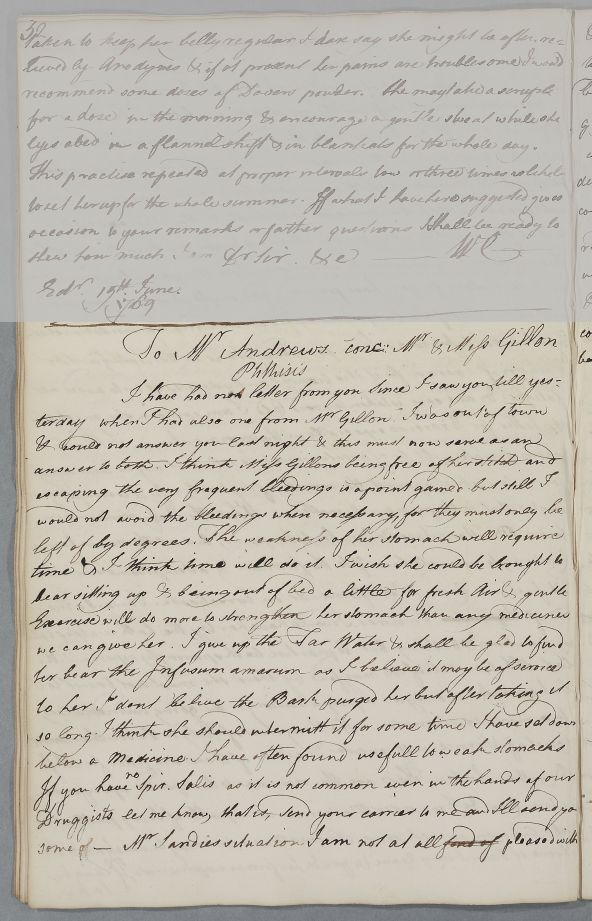 38
taken to keep her belly regular I dare say she might be after re=
lieved by Anodynes & if at present her pains are troublesome I would
recommend some doses of Dovers powder. She may take a scruple
for a dose in the morning & encourage a gentle sweat while she
lyes abed in a flannel shift & in blankets for the whole day.
This practise repeated at proper intervals two or three times is likely
to set her up for the whole summer. If what I have here suggested gives
occasion to your remarks or farther questions I shall be ready to
shew how much I am Dr Sir &c WC
Edr. 19th June.
1769
To Mr Andrews conc: Mr & Miss Gillon
Phthisis
I have had no letter from you since I saw you till yes=
terday when I had also one from Mr Gillon I was out of town
& could not answer you last night & this must now serve as an
answer to both. I think Miss Gillons being free of her stitch and
escaping the very frequent bleedings is a point gained but still I
would not avoid the bleedings when necessary, for they must only be
left of by degrees. The weakness of her stomach will require
time & I think time will do it. I wish she could be brought to
bear sitting up & being out of bed a little for fresh Air & gentle
Exercise will do more to strengthen her stomach than any medicines
we can give her. I give up the Tar Water & shall be glad to find
her bear the Infusum amarum as I believe it may be of service
to her I dont believe the Bark purged her but after taking it
so long I think she should intermitt it for some time I have set down
below a Medicine I have often found usefull to weak stomachs
If you have no Spir. Salis as it is not common even in the hands of our
Druggists let me know, that is, send your carrier to me and Ill send you
some of — Mr Sandies situation I am not at all fond of pleased with